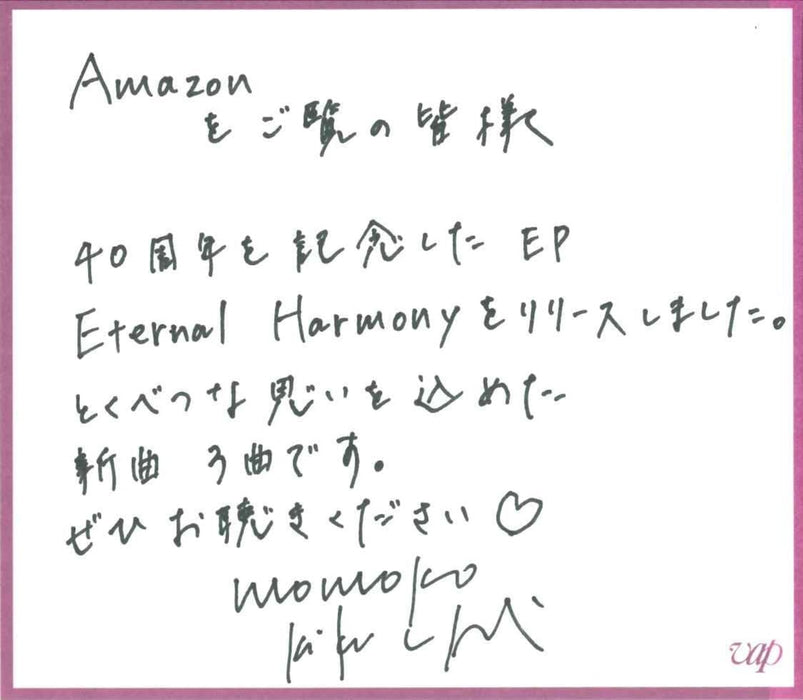 Amazon
をご覧の皆様
40周年を記念したEP
Eternal Harmonyをリリースしました。
とくべつな思いを込めた
新曲 3曲です。
ぜひお聴きください♡
momoko
kikuchi
vap